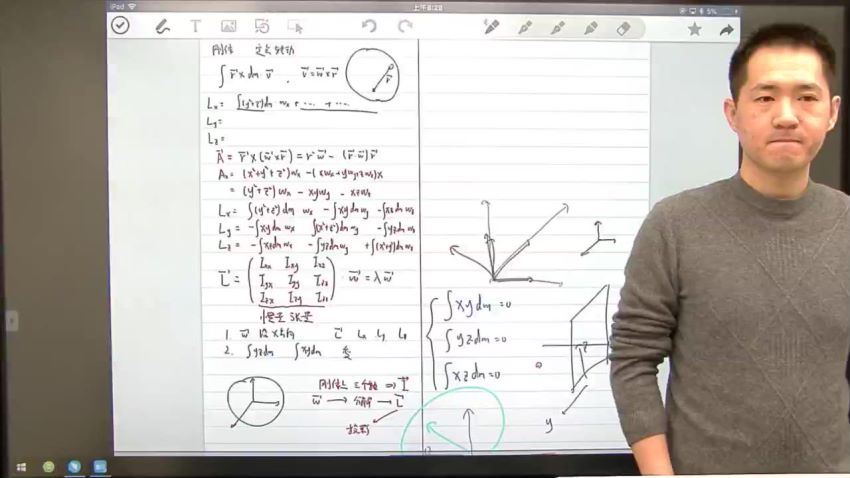 上午8:28
5%
T
刚体 定点转动
∫ r⃗ × dm v⃗ , v⃗ = w⃗ × r⃗
r⃗
Lx = ∫(y²+z²)dm wx + ... + ...
Ly =
Lz =
A⃗ = r⃗ × (w⃗ × r⃗) = r² w⃗ - (r⃗·w⃗) r⃗
Ax = (x²+y²+z²)wx - (xwx+ywy+zwz)x
= (y²+z²)wx - xywy - xzwz
Lx = ∫(y²+z²)dm wx - ∫xydm wy - ∫xzdm wz
Ly = -∫xydm wx ∫(x²+z²)dm wy - ∫yzdm wz
Lz = -∫xzdm wx - ∫yzdm wy + ∫(x²+y²)dm wz
L⃗ = ( Ixx Ixy Ixz
Iyx Iyy Iyz
Izx Izy Izz ) · w⃗ = λ w⃗
惯量张量
1. w⃗ 沿x方向 L⃗ Lx Ly Lz
2. ∫yzdm ∫xydm 变
刚体上三个轴 ⇒ I⃗
w⃗ → 分解 → L⃗
∫xydm=0
∫yzdm=0
∫xzdm=0
z
y